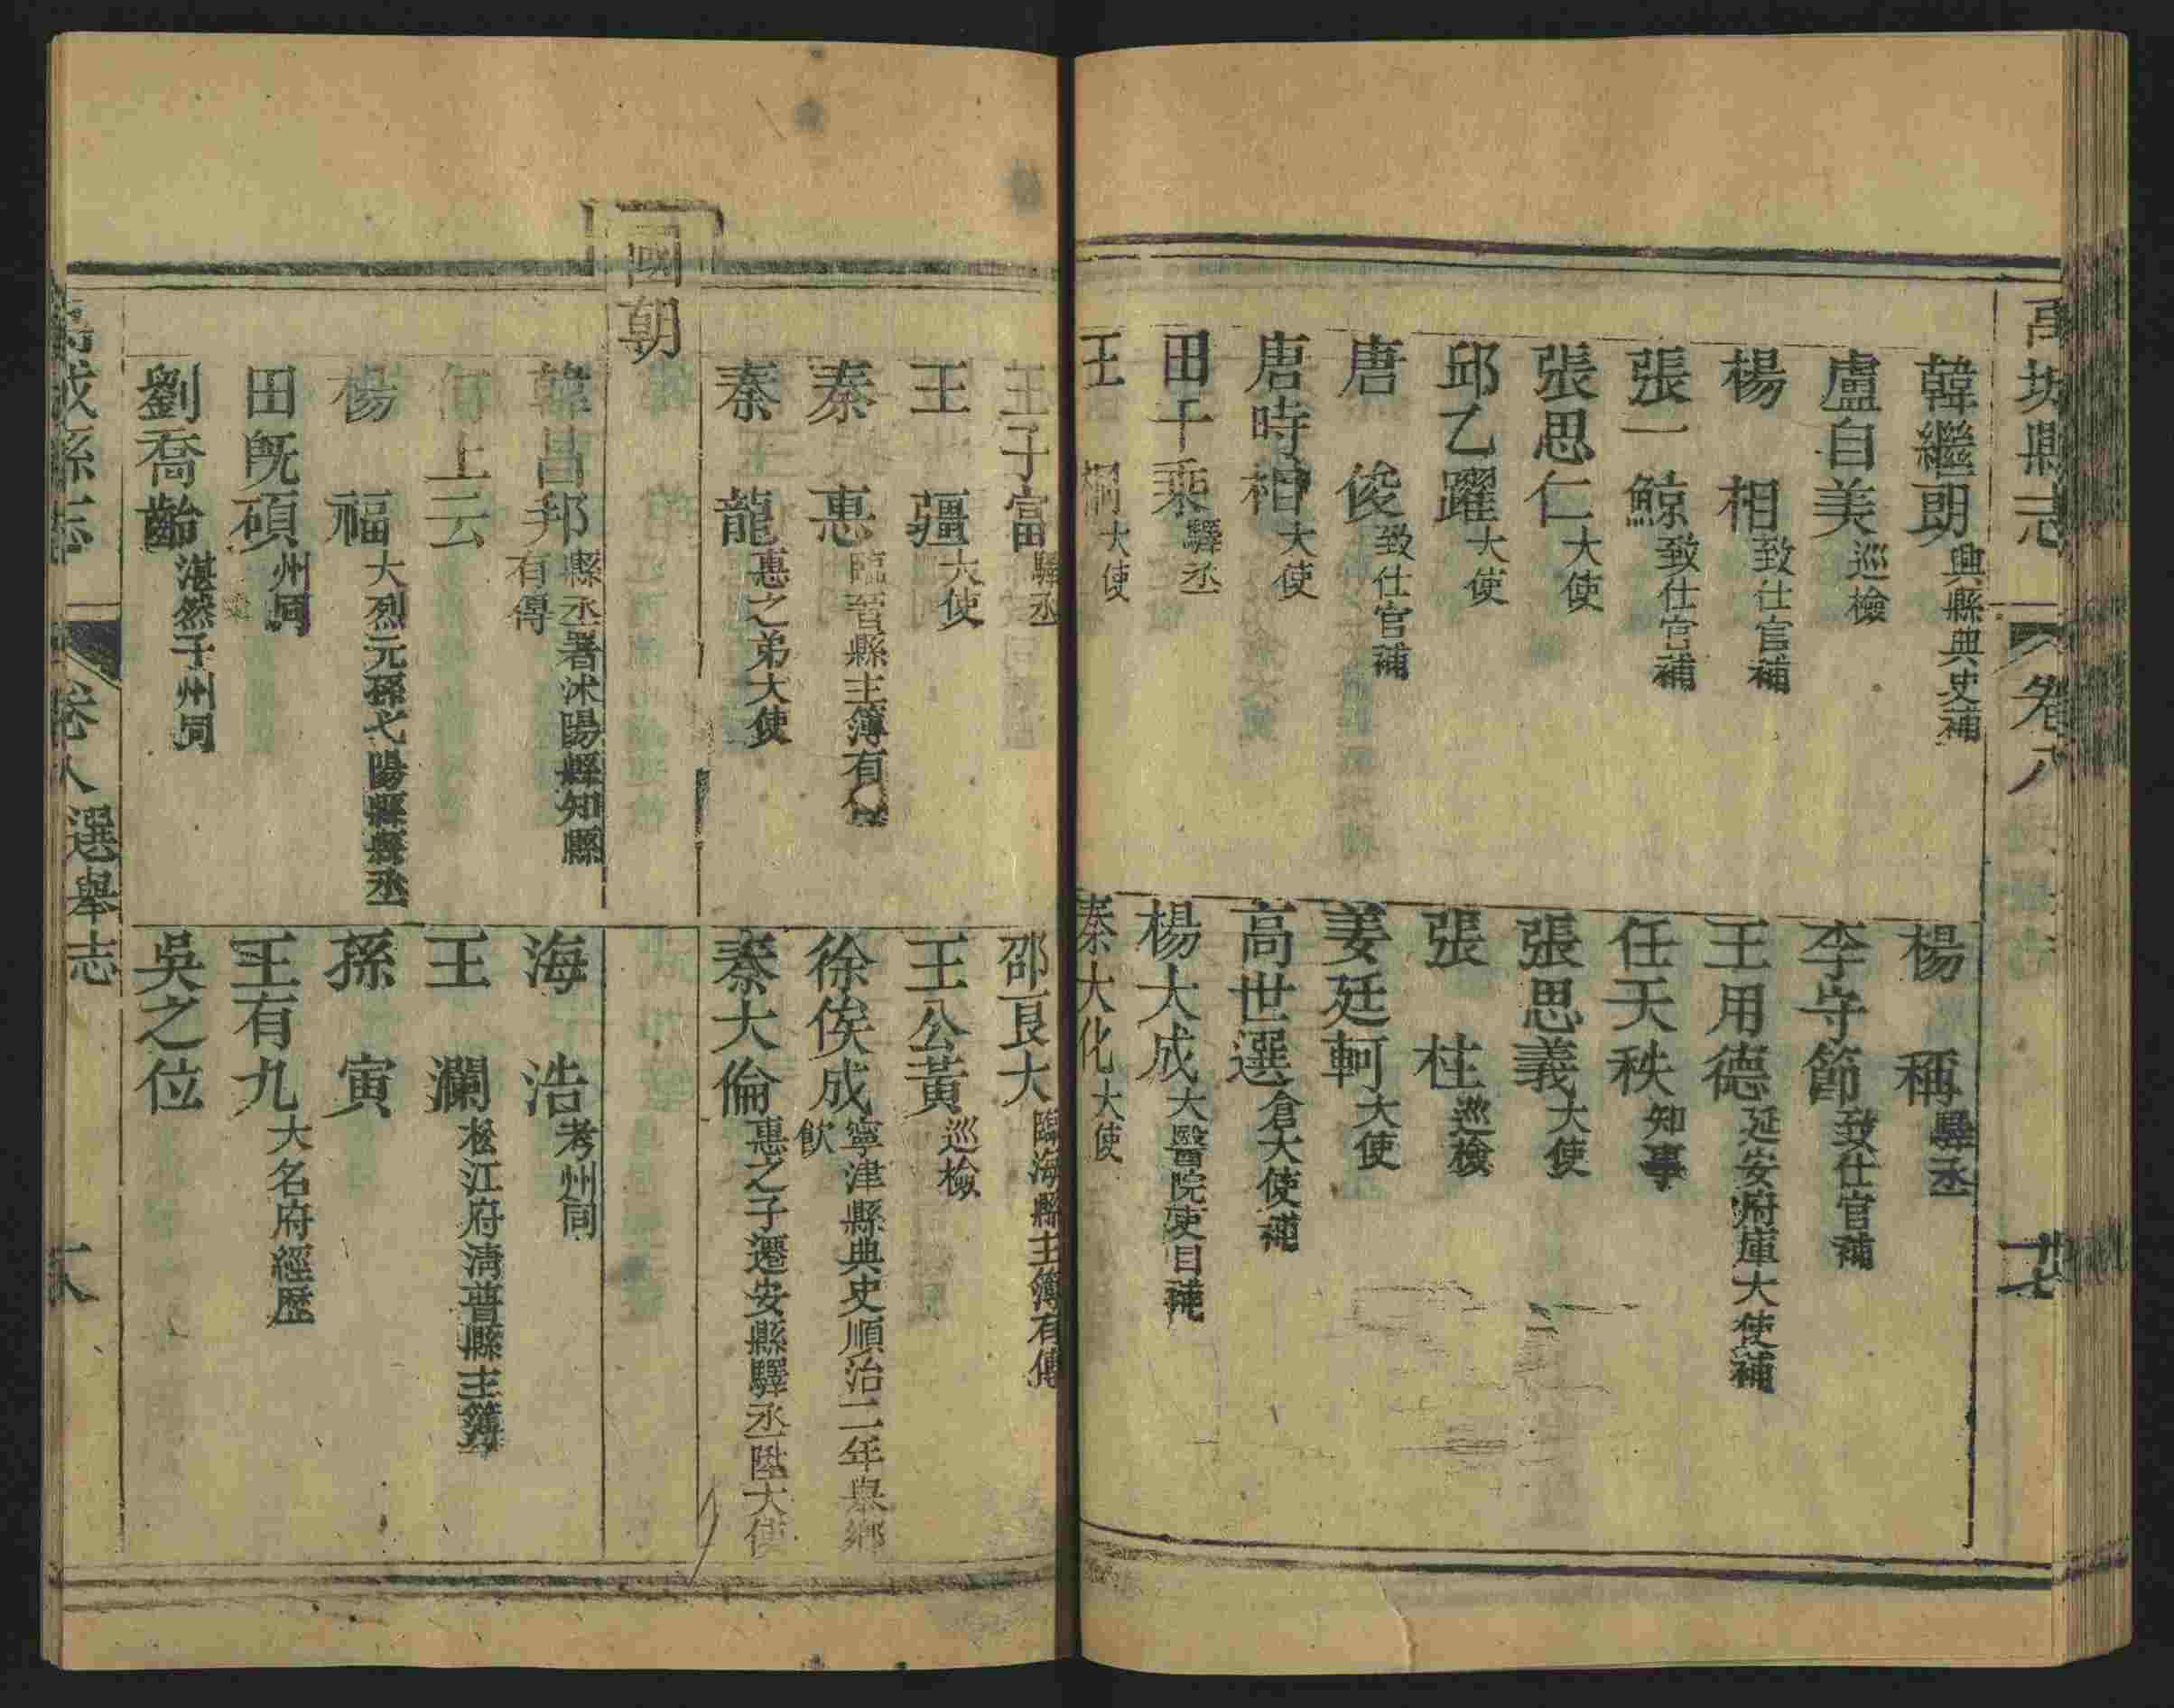 禹城縣志 卷八
韓繼朗 興縣典史補
楊稱 驛丞
盧自美 巡檢
李守節 致仕官補
楊相 致仕官補
王用德 延安府庫大使補
張一鯨 致仕官補
任天秩 知事
張思仁 大使
張思義 大使
邱乙躍 大使
張柱 巡檢
唐俊 致仕官補
姜廷軻 大使
唐時相 大使
高世選 倉大使補
田千乘 驛丞
楊大成 大醫院吏目補
王桐 大使
秦大化 大使
王子富 驛丞
邵良大 臨海縣主簿有傳
王疆 大使
王公黃 巡檢
秦惠 臨晉縣主簿有傳
徐俟成 寧津縣典史順治二年舉鄉
飲
秦龍 惠之弟大使
秦大倫 惠之子遷安縣驛丞陞大使
國朝
韓昌邦 縣丞署沭陽縣知縣
有得
海浩 考州同
上云
王瀾 松江府淸普縣主簿
楊福 大烈元孫弋陽縣縣丞
孫寅
田旣碩 州同
王有九 大名府經歷
劉喬齡 湛然子州同
吳之位
禹城縣志 卷八選舉志